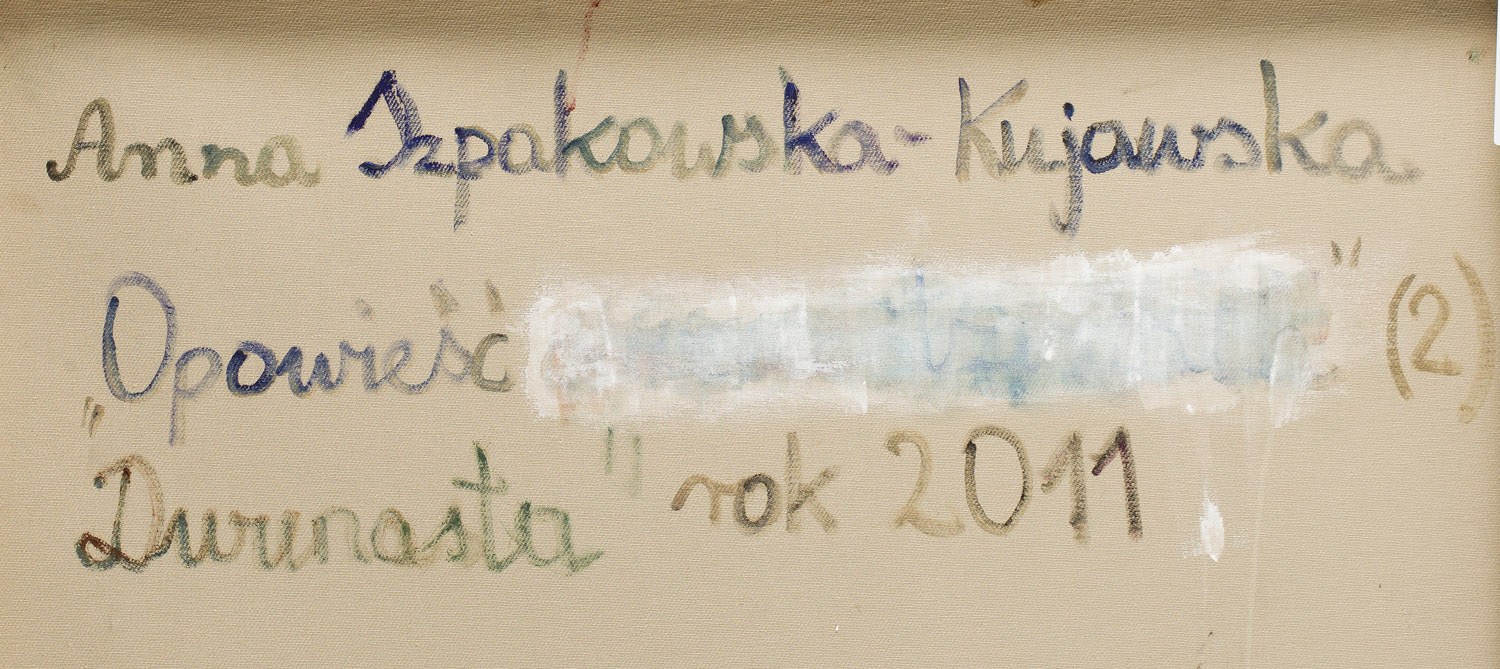 Anna Szpakowska-Kujawska
„Opowieść " (2)
Dwunasta" rok 2011